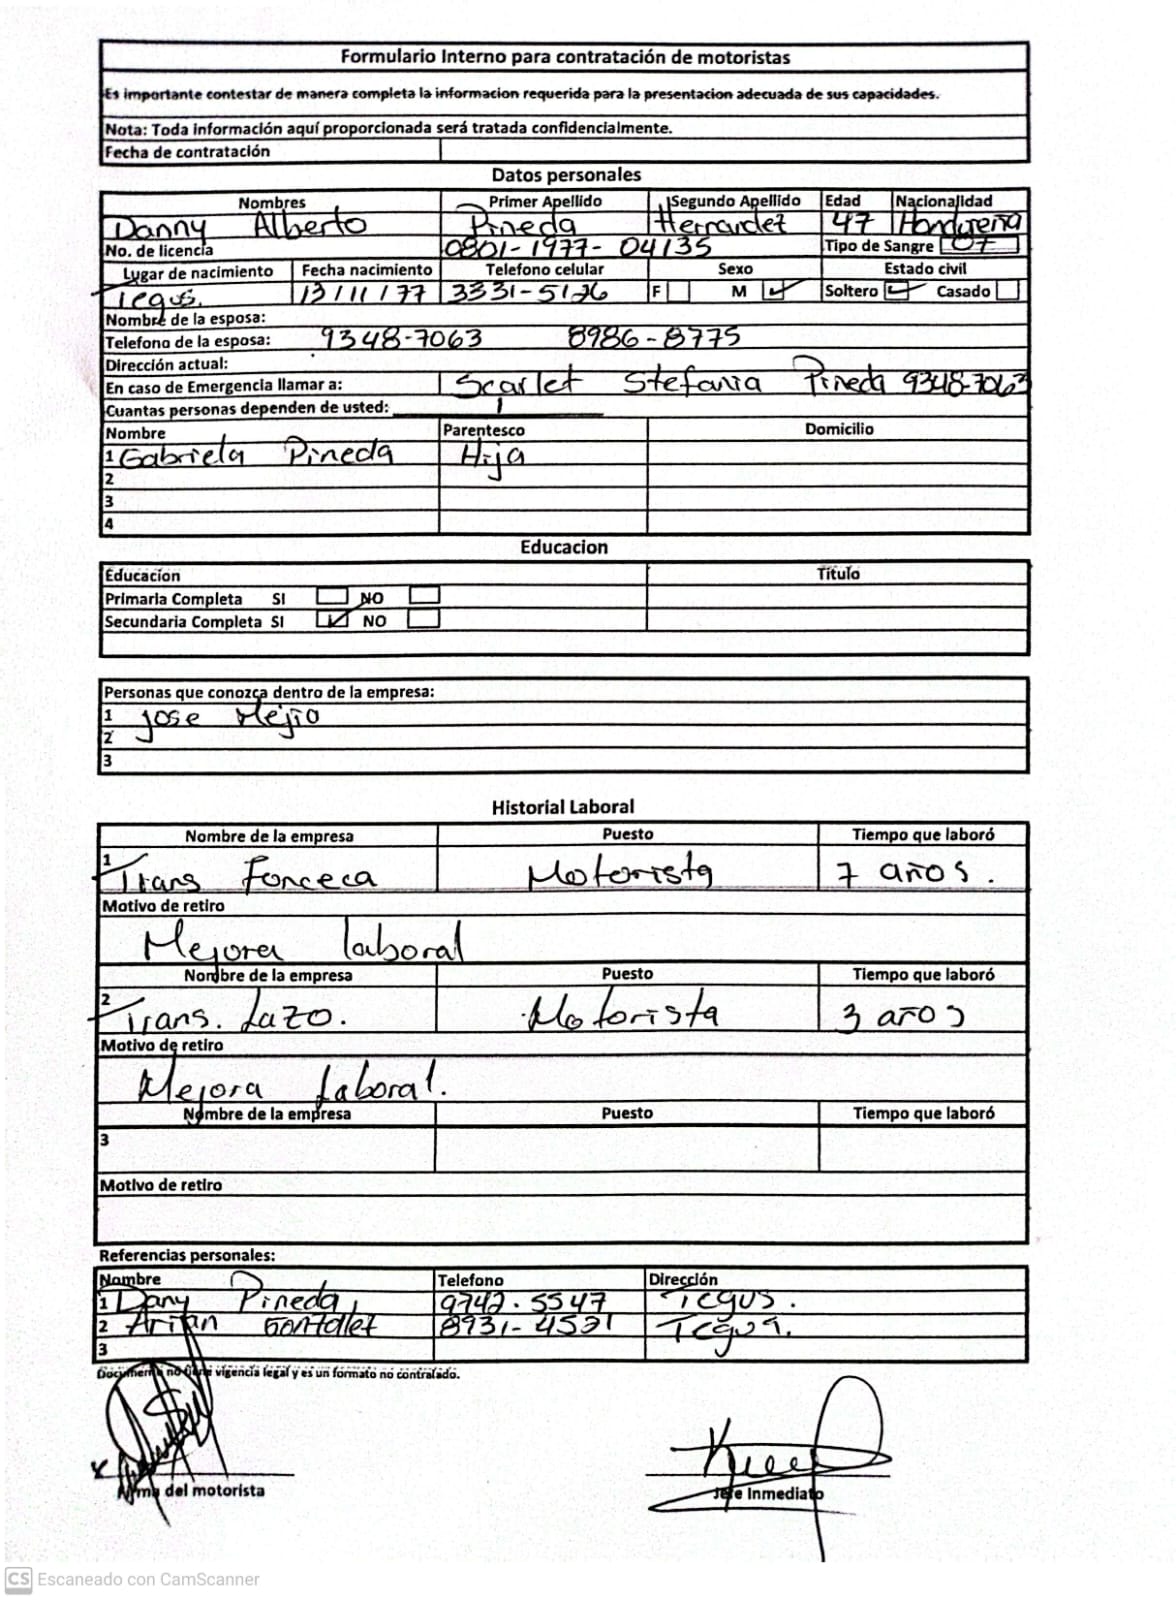 Formulario Interno para contratación de motoristas
Es importante contestar de manera completa la informacion requerida para la presentacion adecuada de sus capacidades.
Nota: Toda información aquí proporcionada será tratada confidencialmente.
Fecha de contratación
Datos personales
Nombres Primer Apellido Segundo Apellido Edad Nacionalidad
Danny Alberto Pineda Hernandez 47 Hondureña
No. de licencia 0801-1977-04135 Tipo de Sangre
Lugar de nacimiento Fecha nacimiento Telefono celular Sexo Estado civil
Tegus. 13/11/77 3331-5126 F M Soltero Casado
Nombre de la esposa:
Telefono de la esposa: 9348-7063 8986-8775
Dirección actual:
En caso de Emergencia llamar a: Scarlet Stefania Pineda 9348-7063
Cuantas personas dependen de usted: 1
Nombre Parentesco Domicilio
1 Gabriela Pineda Hija
2
3
4
Educacion
Educacion Titulo
Primaria Completa SI NO
Secundaria Completa SI NO
Personas que conozca dentro de la empresa:
1 Jose Mejio
2
3
Historial Laboral
Nombre de la empresa Puesto Tiempo que laboró
1 Trans Fonceca Motorista 7 años.
Motivo de retiro
Mejora laboral
Nombre de la empresa Puesto Tiempo que laboró
2 Trans. Lazo. Motorista 3 años
Motivo de retiro
Mejora Laboral.
Nombre de la empresa Puesto Tiempo que laboró
3
Motivo de retiro
Referencias personales:
Nombre Telefono Dirección
1 Dany Pineda 9742-5547 Tegus.
2 Arian Gonzalez 8931-4521
3
Documento no tiene vigencia legal y es un formato no contralado.
Firma del motorista Jefe Inmediato
CS Escaneado con CamScanner